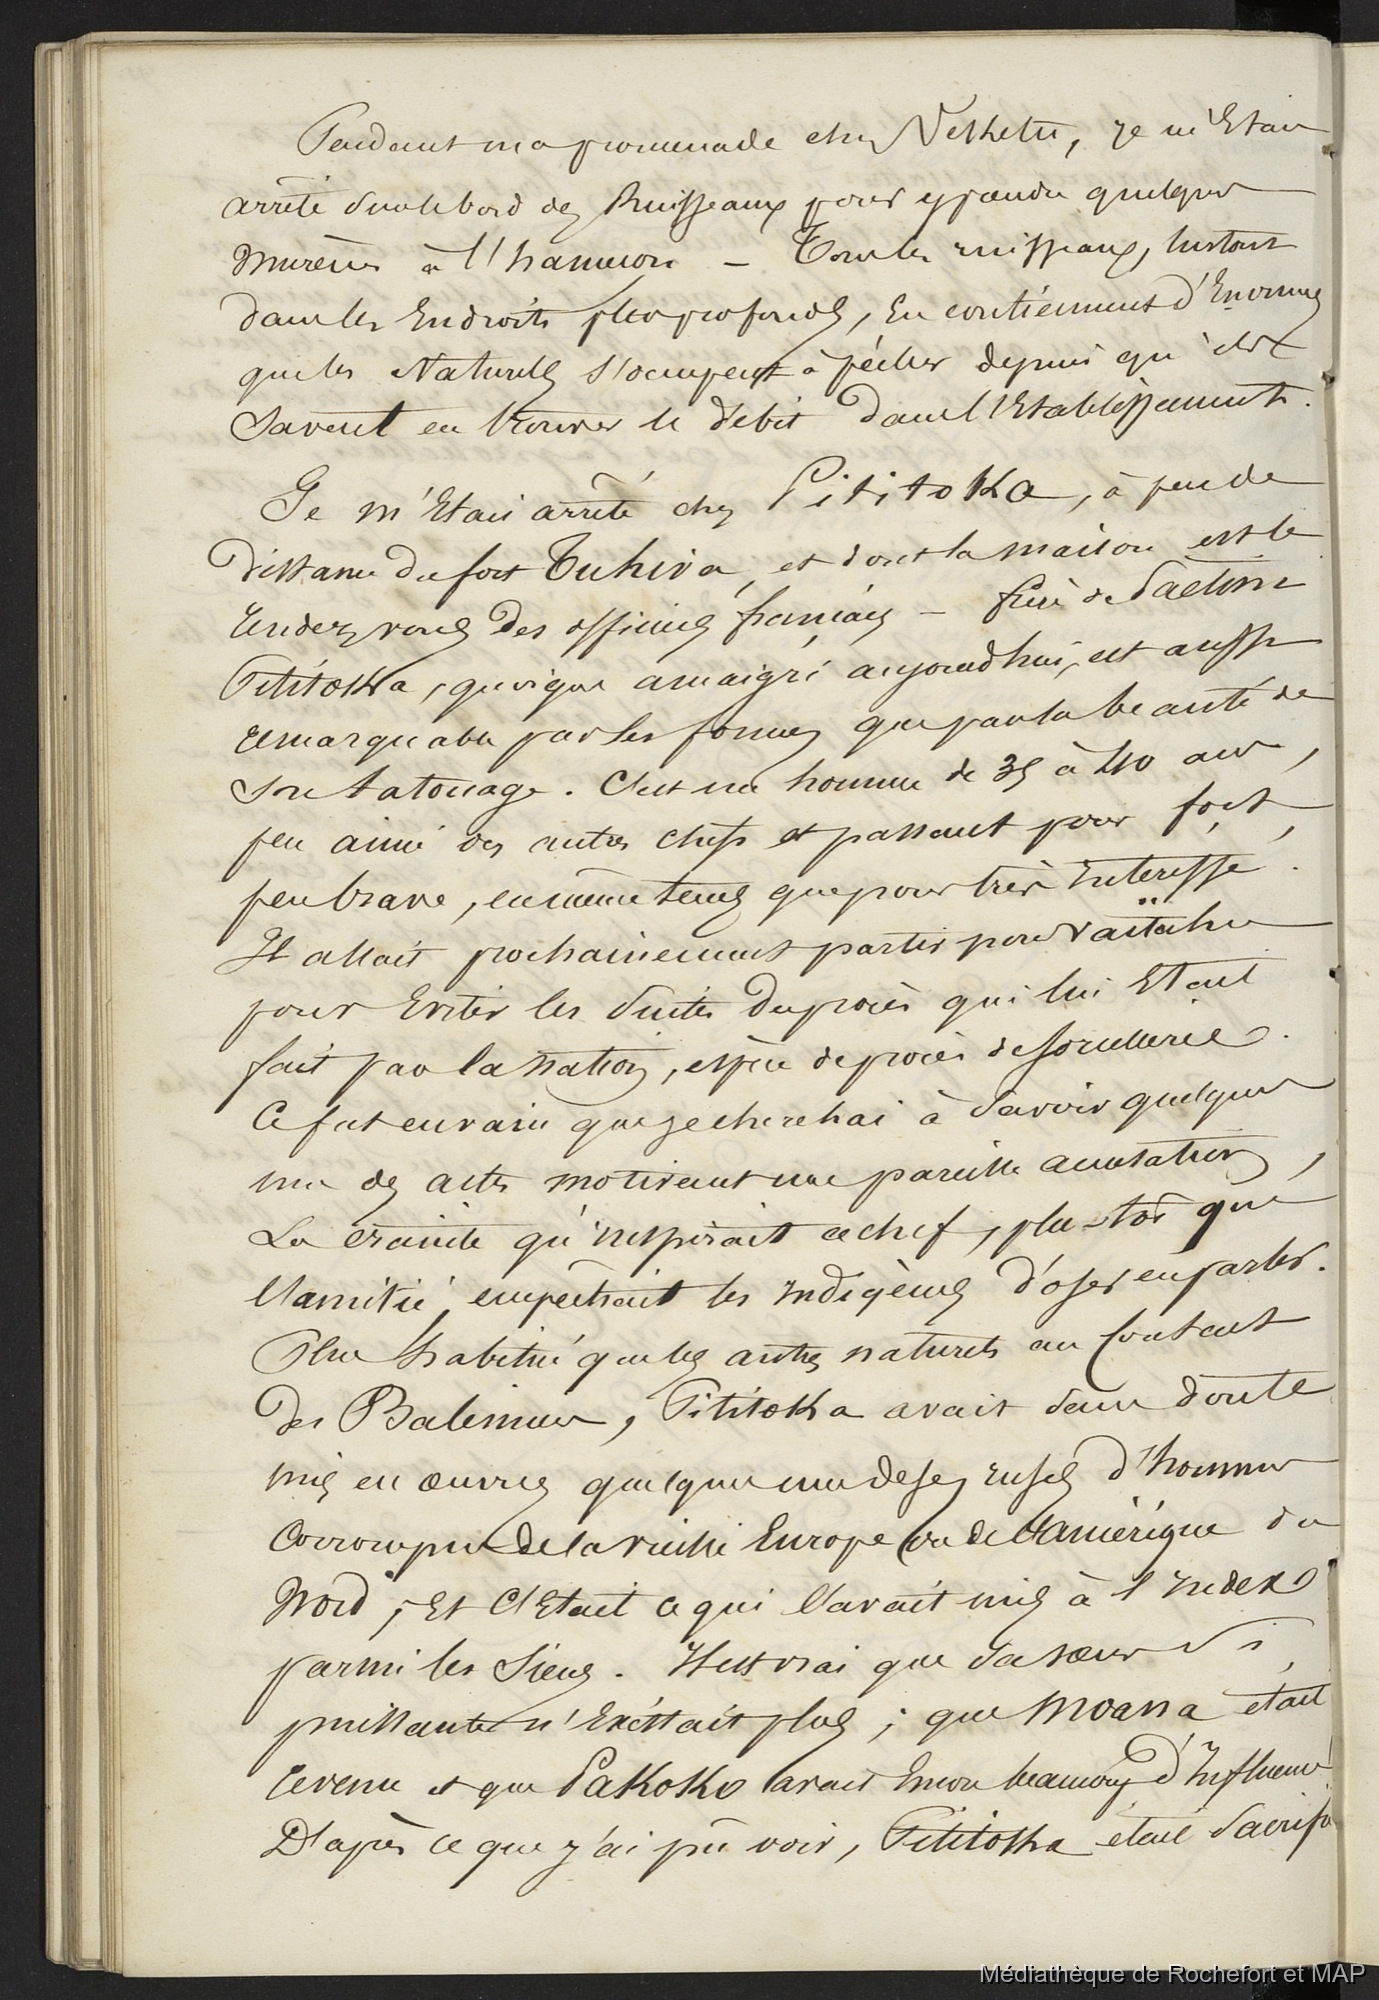 Pendant ma promenade chez Vekhetu, je m'Etais
arrêté sur le bord des Ruisseaux pour y prendre quelques
murènes à l'hameçon — Tous les ruisseaux, surtout
dans les Endroits plus profonds, En contiennent d'Enormes
que les Naturels s'occupent à pécher depuis qu'ils
Savent en trouver le débit dans l'Etablissement.
Je m'Etais arrêté chez Pititoka, à peu de
distance du fort Tuhiva, et dont la maison est le
rendez vous des officiers français — frère de Paetini
Pititoka, quoique amaigri aujourd'hui, est aussi
remarquable par les formes que par la beauté de
son tatouage. C'est un homme de 35 à 40 ans,
peu aimé des autres chefs et passant pour fort
peu brave, en même tems que pour très interessé.
Il allait prochainement partir pour Vaïtahu
pour Eviter les Suites du procès qui lui Etait
fait par la nation, espèce de procès de sorcellerie.
Ce fut en vain que je cherchai à Savoir quelques
uns des actes motivant une pareille accusation,
La crainte qu'inspirait ce chef, plus-tôt que
l'amitié, empechait les indigènes d'oser en parler.
Plus habitué que les autres naturels au Contact
des Baleiniers, Pititoka avait sans doute
mis en œuvre quelques unes de ses ruses d'hommes
Corrompus de la vieille Europe ou de l'Amérique du
Nord, Et C'Etait ce qui l'avait mis à l'index
parmi les Siens. Il est vrai que sa sœur si
puissante n'Existait plus ; que Moana était
revenu et que Pakoko avait Encore beaucoup d'Influence
D'après ce que j'ai pû voir, Pititoka était Sacrifi
Médiathèque de Rochefort et MAP